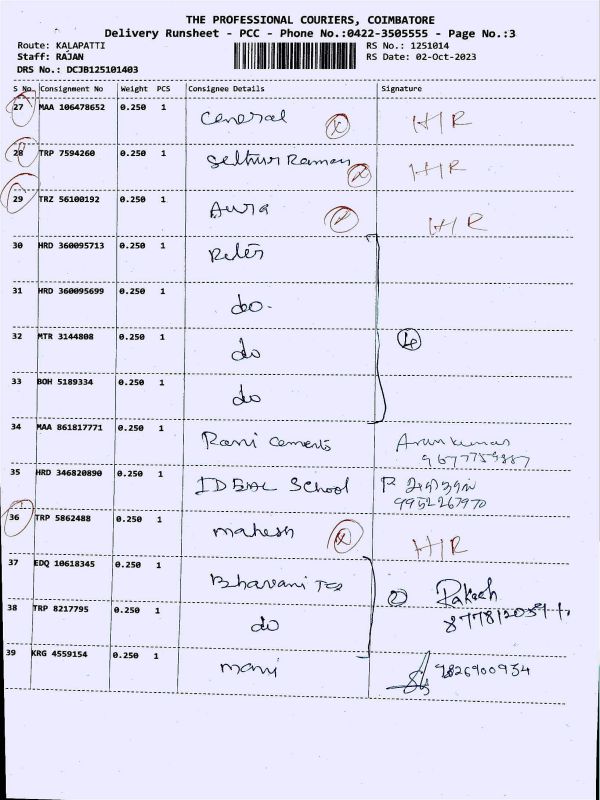 THE PROFESSIONAL COURIERS, COIMBATORE
Delivery Runsheet - PCC - Phone No.:0422-3505555 - Page No.:3
Route: KALAPATTI RS No.: 1251014
Staff: RAJAN RS Date: 02-Oct-2023
DRS No.: DCJB125101403
S No. Consignment No Weight PCS Consignee Details Signature
27 MAA 106478652 0.250 1 General X H/R
28 TRP 7594260 0.250 1 X H/R
29 TRZ 56100192 0.250 1 Aura X H/R
30 HRD 360095713 0.250 1
31 HRD 360095699 0.250 1 do.
32 MTR 3144808 0.250 1 do
33 BOH 5189334 0.250 1 do
34 MAA 861817771 0.250 1 Rani Cements Arunkumar
35 HRD 346820890 0.250 1 IDEAL School P.
9952267970
36 TRP 5862488 0.250 1 mahesh X H/R
37 EDQ 10618345 0.250 1 Bhavani Tex Rakesh
38 TRP 8217795 0.250 1 do
39 KRG 4559154 0.250 1 mani